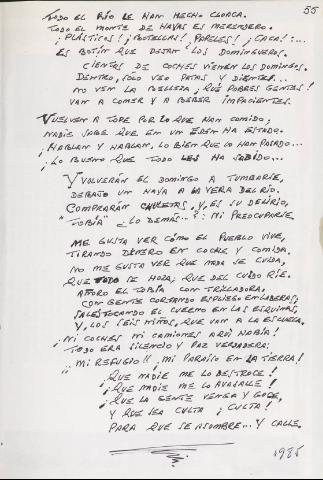 55
TODO EL RÍO LE HAN HECHO CLOACA.
TODO EL MONTE DE HAYAS ES MERENDERO.
¡PLÁSTICOS! ¡BOTELLAS! ¡PAPELES! ¡CACA!...
ES BOTÍN QUE DEJAN LOS DOMINGUEROS.
CIENTOS DE COCHES VIENEN LOS DOMINGOS.
DENTRO, SÓLO VEO PATAS Y DIENTES...
NO VEN LA BELLEZA ¡QUÉ POBRES GENTES!
VAN A COMER Y A BEBER IMPACIENTES.
VUELVEN A TOPE POR LO QUE HAN COMIDO;
NADIE SABE QUE EN UN EDEN HA ESTADO.
¡HABLAN Y HABLAN, LO BIEN QUE LO HAN PASADO...
¡LO BUENO QUE TODO LES HA SABIDO...
Y VOLVERÁN EL DOMINGO A TUMBARSE,
DEBAJO UN HAYA A LA VERA DEL RÍO.
COMPRARÁN CHULETAS, Y, ES SU DELIRIO,
"TOBÍA" ¿LO DEMÁS..?: NI PREOCUPARSE.
ME GUSTA VER CÓMO EL PUEBLO VIVE,
TIRANDO DINERO EN COCHE Y COMIDA.
NO ME GUSTA VER QUE NADA SE CUIDA,
QUE TODO SE MOFA; QUE DEL CULTO RIE.
AÑORO EL TOBÍA CON TRILLADORA,
CON GENTE CORTANDO ESPLIEGO EN LADERAS,
SALES TOCANDO EL CUERNO EN LAS ESQUINAS,
Y, LOS SEIS NIÑOS, QUE VAN A LA ESCUELA.
¡NI COCHES NI CAMIONES AQUÍ HABÍA!
TODO ERA SILENCIO Y PAZ VERDADERA:
¡¡MI REFUGIO!! ¡MI PARAÍSO EN LA TIERRA!
¡QUE NADIE ME LO DESTROCE!
¡QUE NADIE ME LO AVASALLE!
¡QUE LA GENTE VENGA Y GOCE,
Y QUE SEA CULTA ¡CULTA!
PARA QUE SE ASOMBRE... Y CALLE.
1985